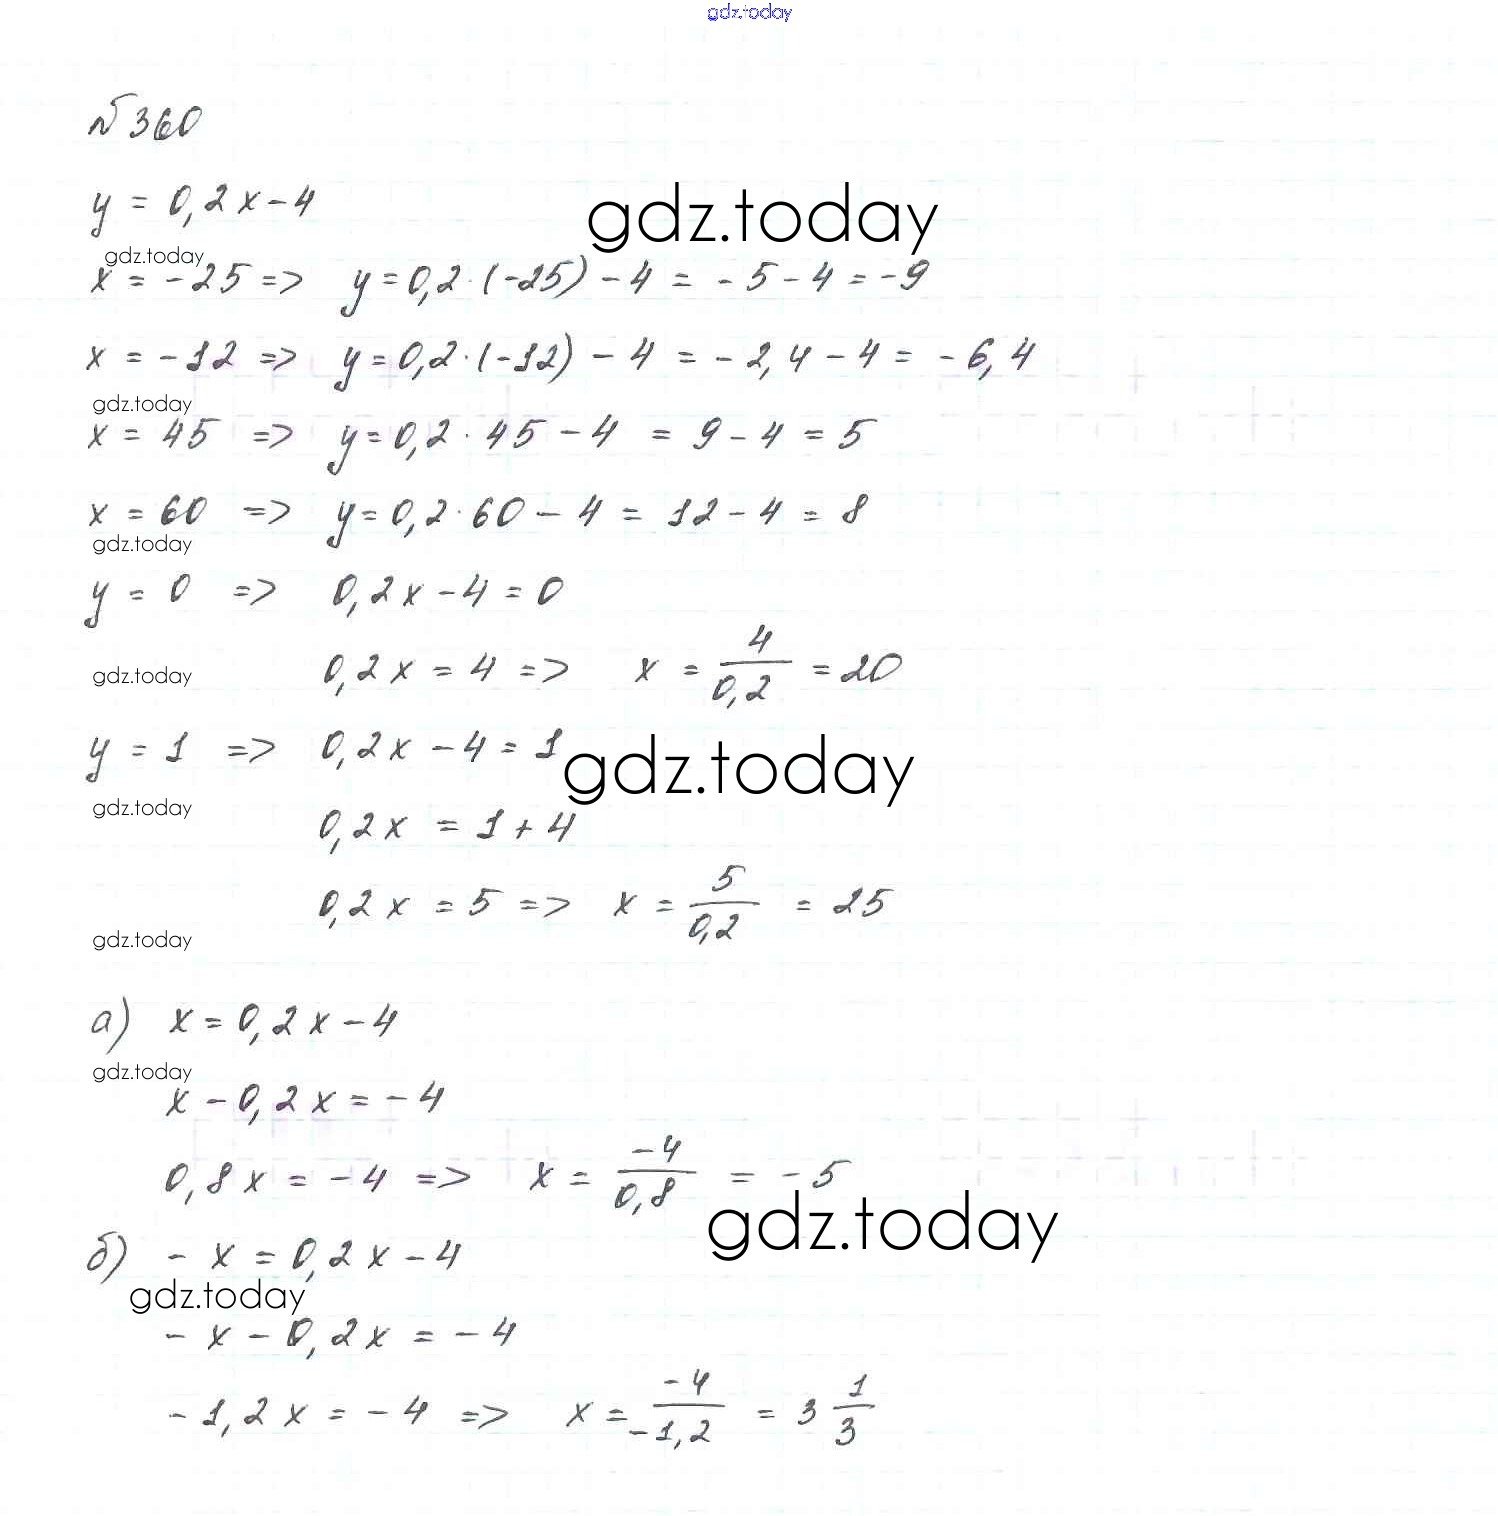 gdz.today
№360
y = 0,2x - 4
gdz.today
gdz.today
x = -25 => y = 0,2 · (-25) - 4 = -5 - 4 = -9
x = -12 => y = 0,2 · (-12) - 4 = -2,4 - 4 = -6,4
gdz.today
x = 45 => y = 0,2 · 45 - 4 = 9 - 4 = 5
x = 60 => y = 0,2 · 60 - 4 = 12 - 4 = 8
gdz.today
y = 0 => 0,2x - 4 = 0
gdz.today
0,2x = 4 => x = 4/0,2 = 20
y = 1 => 0,2x - 4 = 1
gdz.today
gdz.today
0,2x = 1 + 4
0,2x = 5 => x = 5/0,2 = 25
gdz.today
а) x = 0,2x - 4
gdz.today
x - 0,2x = -4
0,8x = -4 => x = -4/0,8 = -5
gdz.today
б) -x = 0,2x - 4
gdz.today
-x - 0,2x = -4
-1,2x = -4 => x = -4/-1,2 = 3 1/3